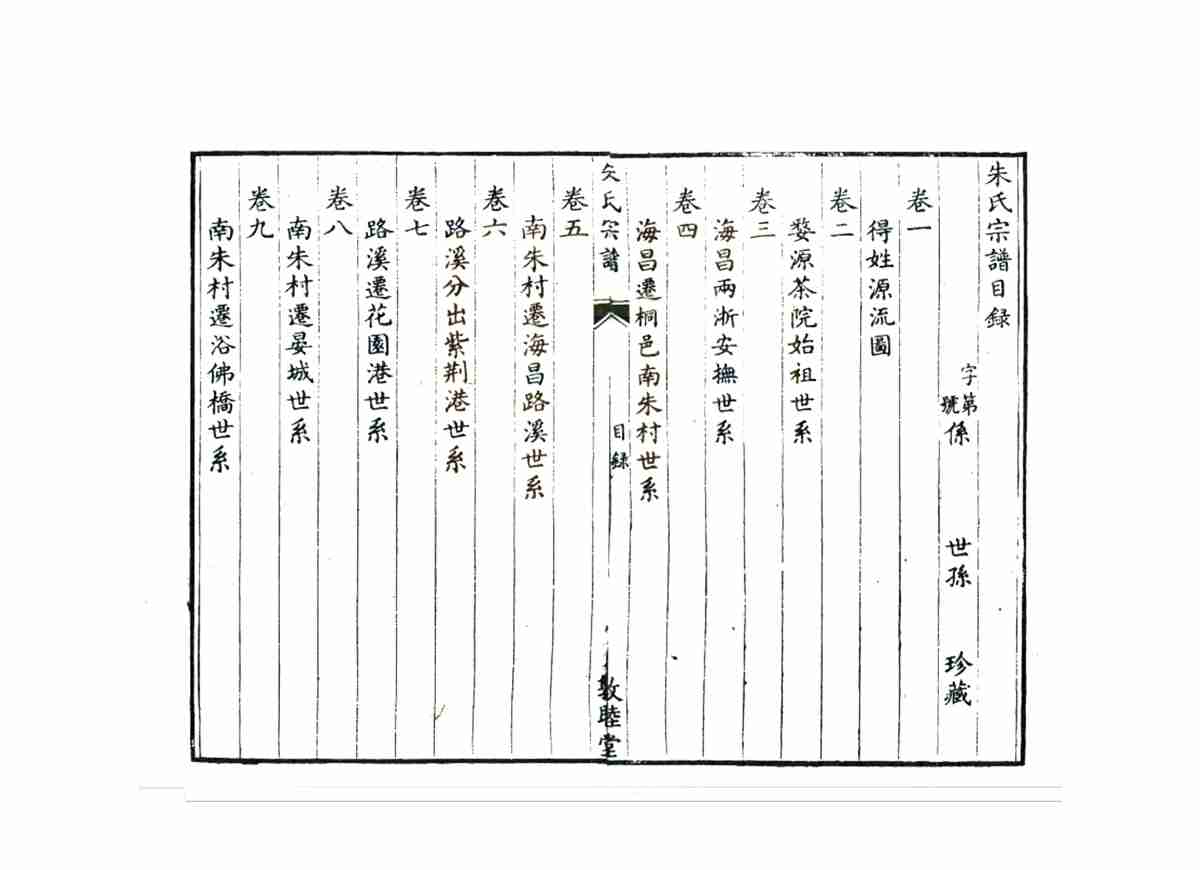 朱氏宗譜目録
字第號係 世孫 珍藏
卷一
得姓源流圖
卷二
婺源茶院始祖世系
卷三
海昌兩浙安撫世系
卷四
海昌遷桐邑南朱村世系
朱氏宗譜 目録 敦睦堂
卷五
南朱村遷海昌路溪世系
卷六
路溪分出紫荆港世系
卷七
路溪遷花園港世系
卷八
南朱村遷晏城世系
卷九
南朱村遷浴佛橋世系